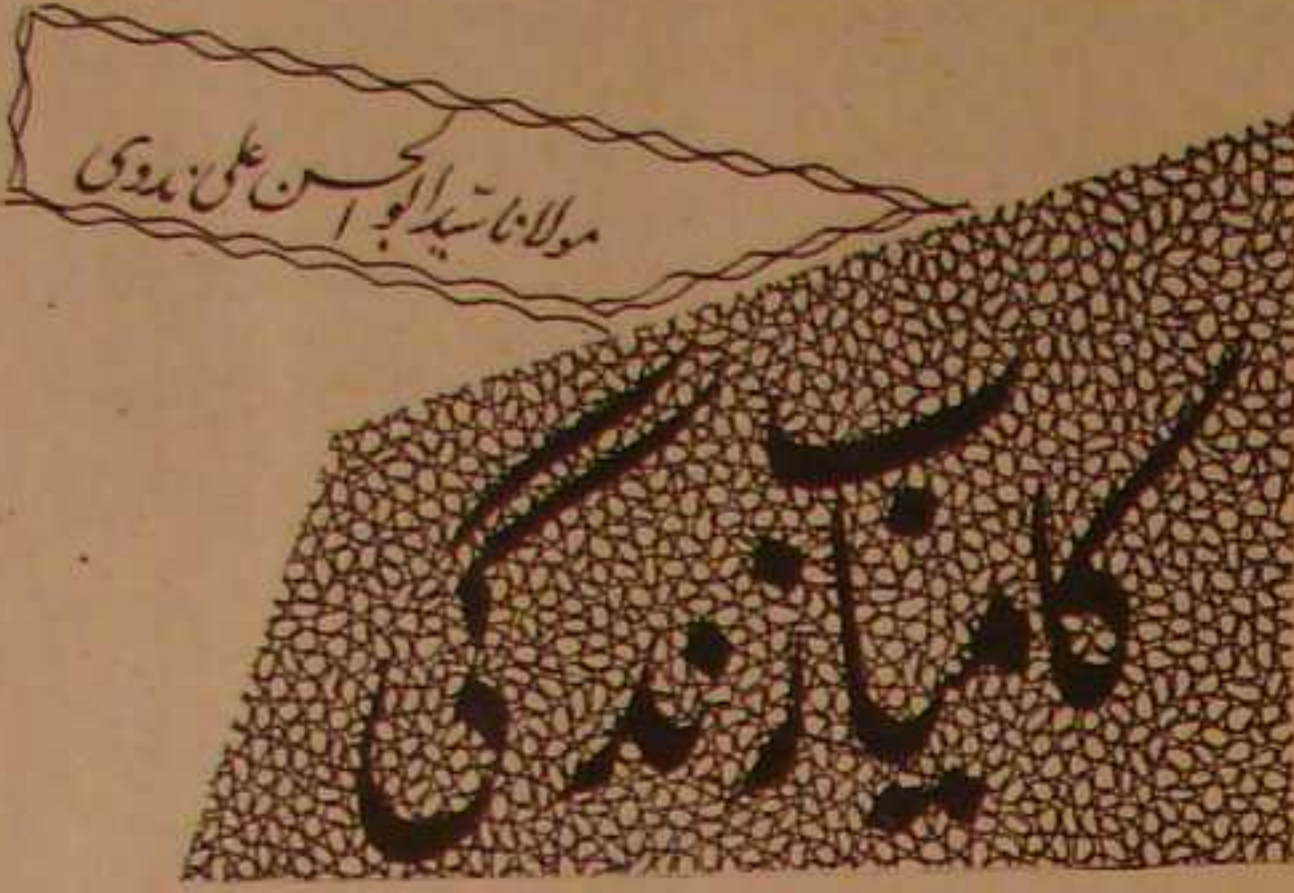 مولانا سید ابوالحسن علی ندوی
کامیاب زندگی